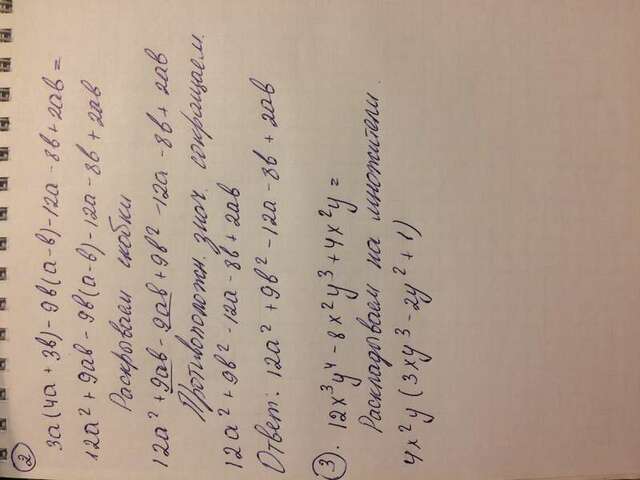 2
3а(4а + 3в) - 9в(а-в) - 12а - 8в + 2ав =
12а² + 9ав - 9в(а-в) - 12а - 8в + 2ав
Раскрываем скобки
12а² + 9ав - 9ав + 9в² - 12а - 8в + 2ав
Противоположн. знач. сокращаем.
12а² + 9в² - 12а - 8в + 2ав
Ответ: 12а² + 9в² - 12а - 8в + 2ав
3. 12x³y⁴ - 8x²y³ + 4x²y =
Раскладываем на множители.
4x²y (3xy³ - 2y² + 1)